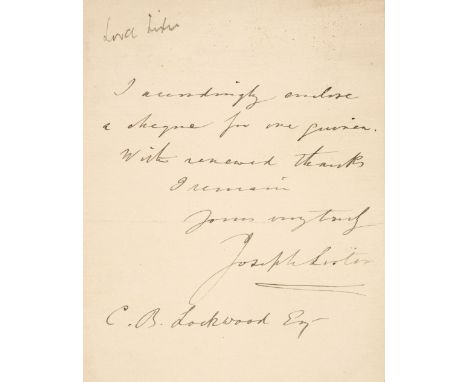 Lord Lister
I accordingly enclose
a cheque for one guinea.
With renewed thanks
I remain
Yours very truly
Joseph Lister
C. B. Lockwood Esq